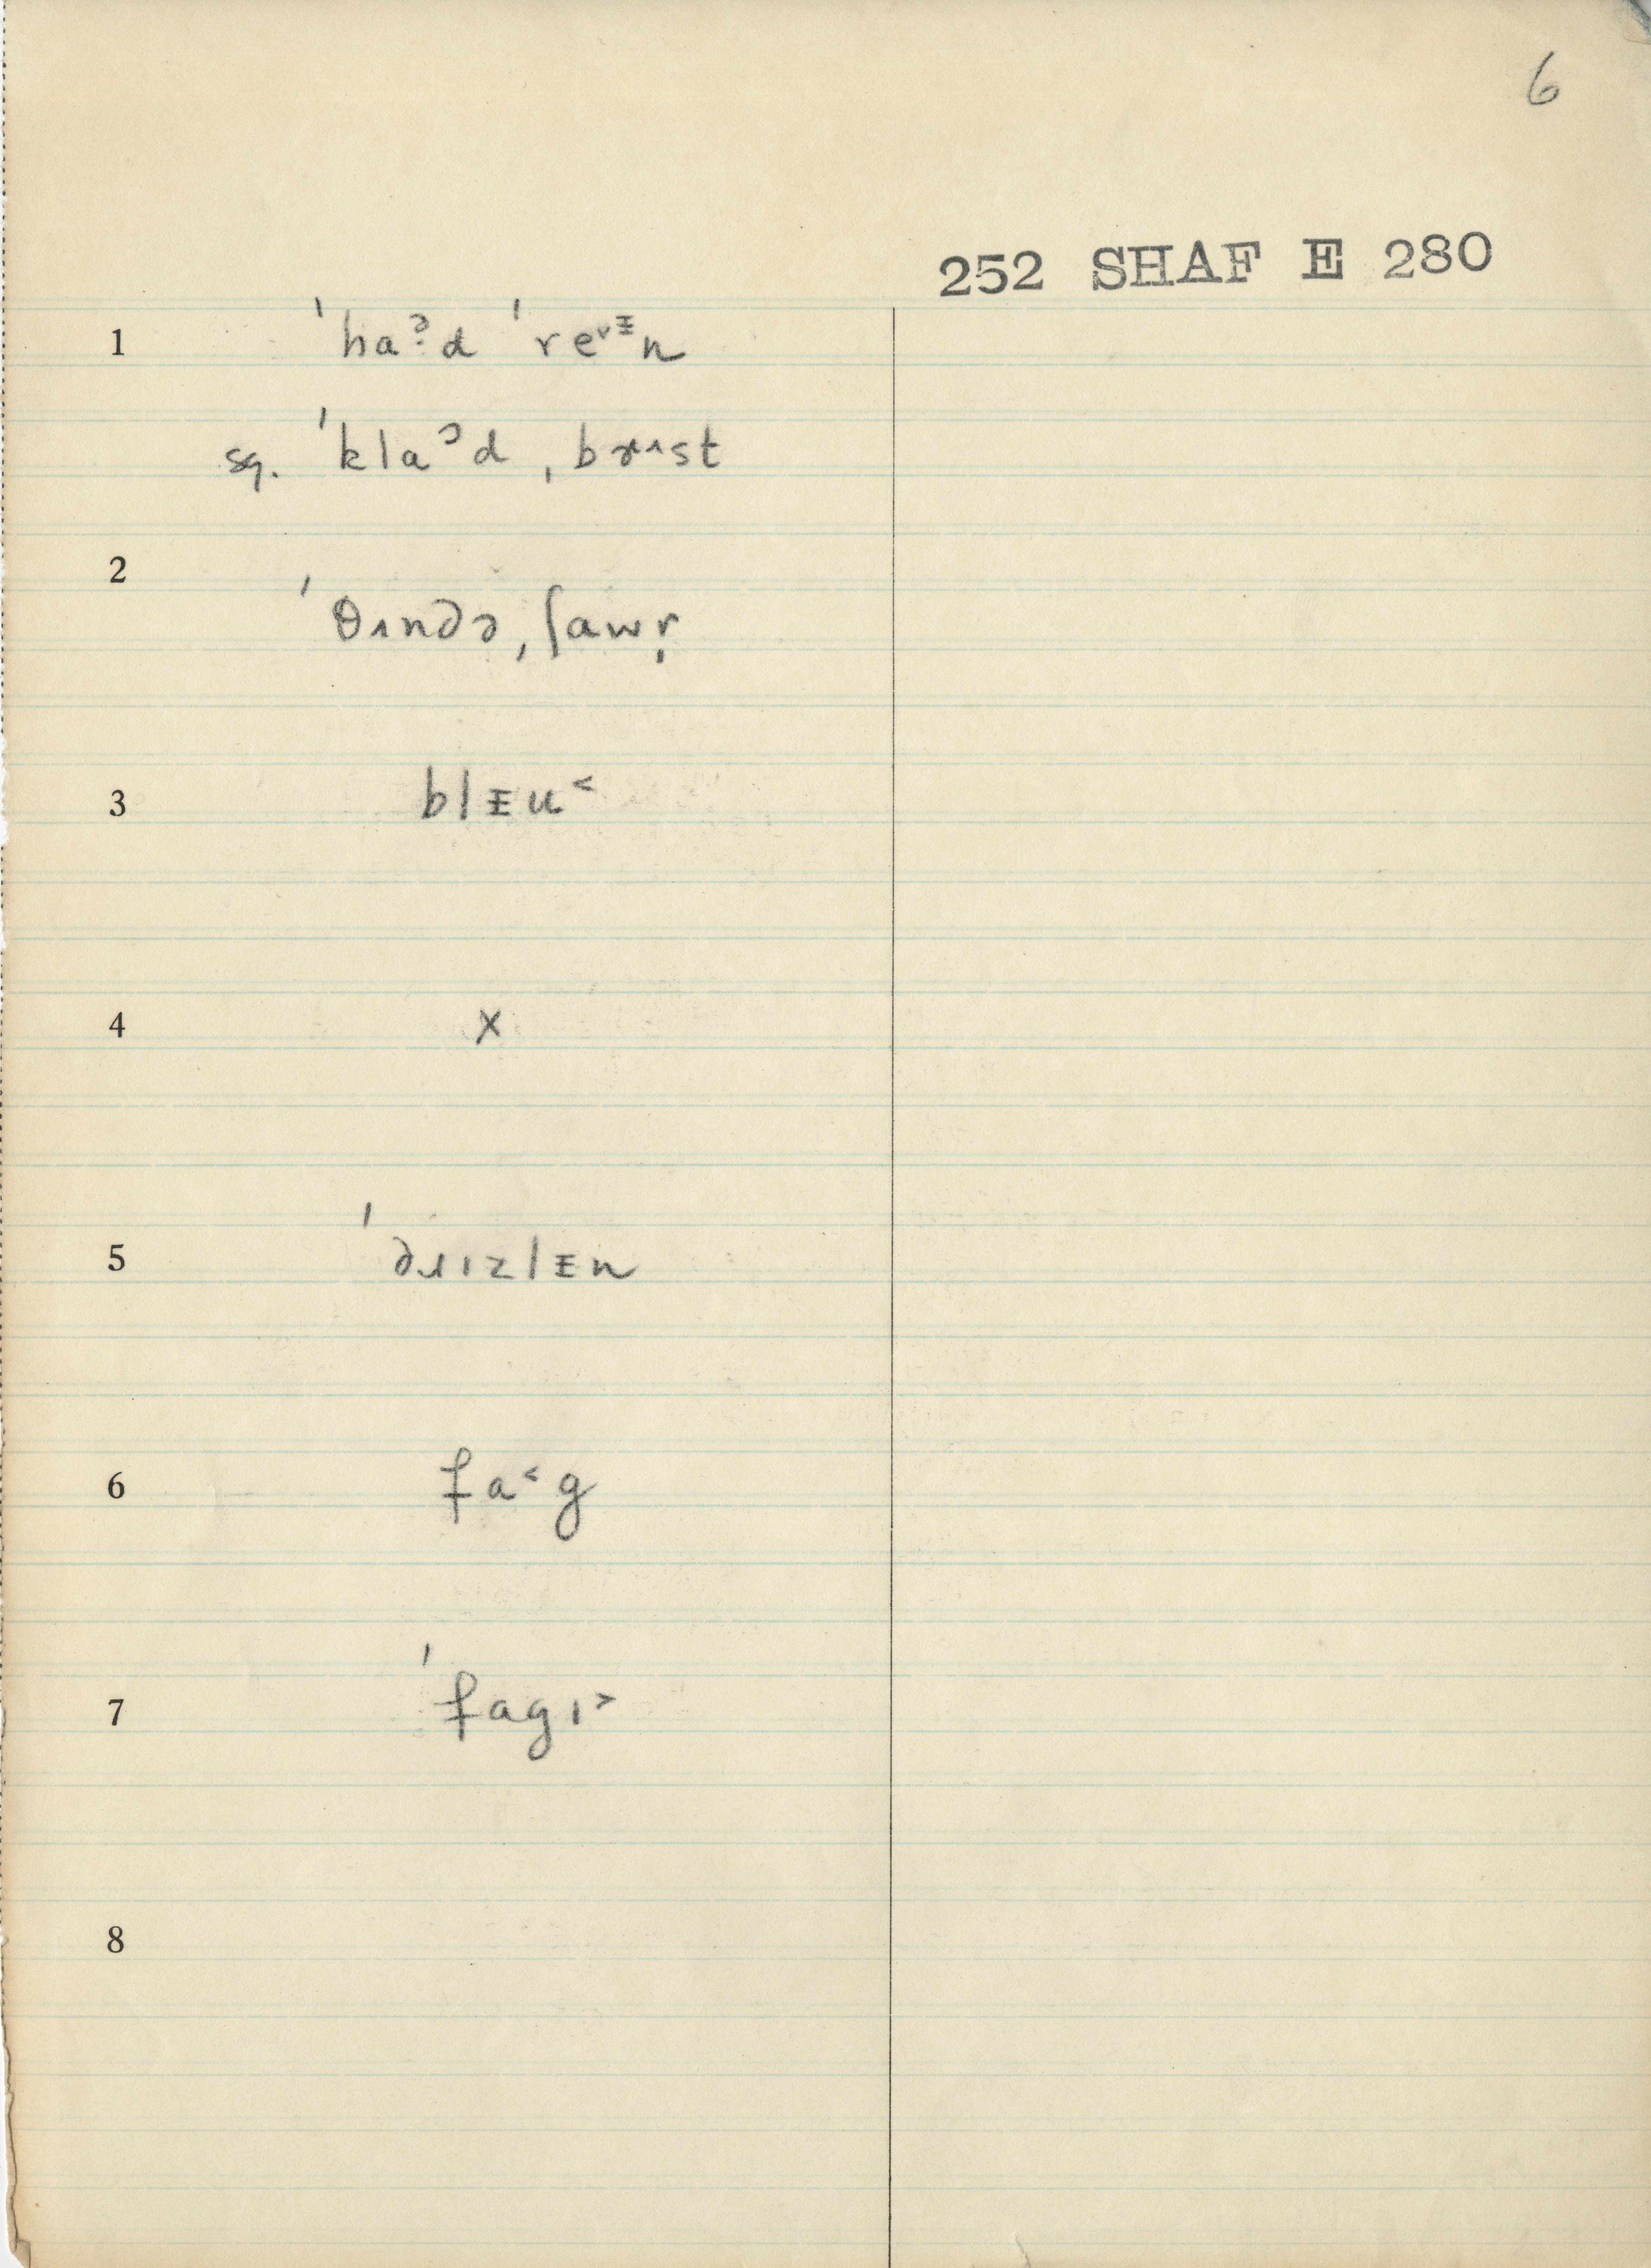 6
252 SHAF E 280
1 ˈhaᵊ̣d ˈreᵛᵻn
sq. ˈklaᵊd ˌbɤʌst
2 ˈθɪndə ˌʃawr̩
3 blᵻu˂
4 x
5 ˈdɹɪzlᵻn
6 fa˂g
7 ˈfagɪ˃
8